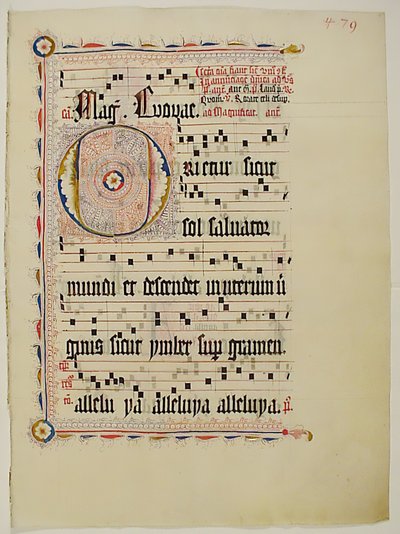 479
Mag̃. Euouae.
ad Magnificat. añ.
Orietur sicut
sol saluator
mundi et descendet in uterum ũ
ginis sicut ymber sup gramen.
allelu ya alleluya alleluya.